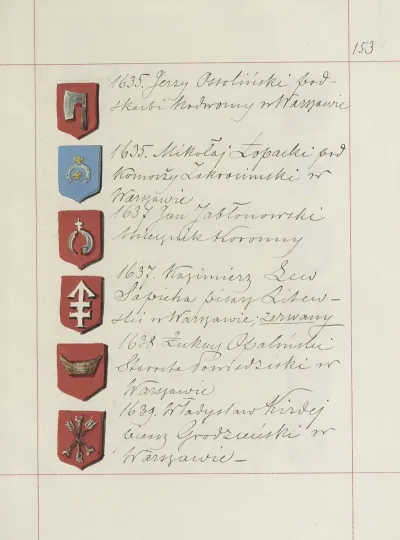 153
1635. Jerzy Ossoliński pod-
skarbi Nadworny w Warszawie
1635. Mikołaj Łopacki pod
Komorzy Zakroczimski w
Warszawie
1637 Jan Jabłonowski
Miecznik Koronny
1637. Kazimierz Lew
Sapieha pisarz Litew-
ski w Warszawie; zerwany
1638 Łukasz Opaliński
Starosta Powiedziski w
Warszawie
1639. Władysław Kirdej
Grodzieński w
Warszawie –